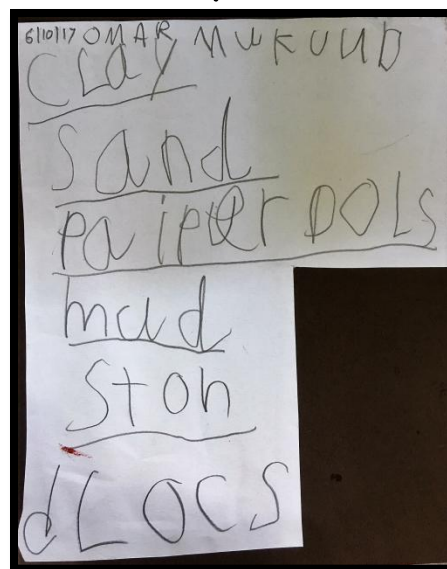 6/10/17 OMAR MUKUUD
CLay
Sand
paiper DOLS
mud
Ston
dLOCS